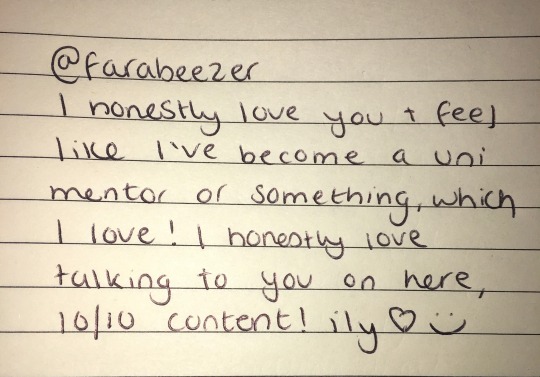 @farabeezer
I honestly love you + feel
like I've become a uni
mentor or something, which
I love! I honestly love
talking to you on here,
10/10 content! ily♡ :)